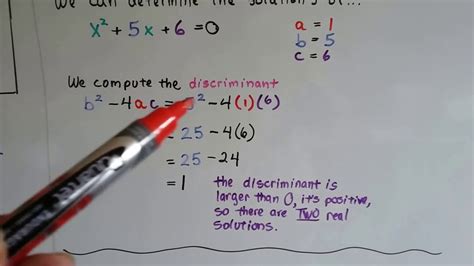 We can determine the solutions of...
x² + 5x + 6 = 0
a = 1
b = 5
c = 6
We compute the discriminant
b² - 4ac = ² - 4(1)(6)
= 25 - 4(6)
= 25 - 24
= 1
the discriminant is
larger than 0, it's positive,
so there are TWO real
solutions.